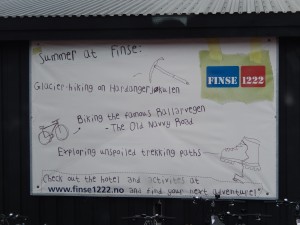 Summer at Finse:
FINSE 1222
Glacier-hiking on Hardangerjøkulen
Biking the famous Rallarvegen
- The Old Navvy Road
Exploring unspoiled trekking paths
Check out the hotel and activities at
www.finse1222.no and find your next adventure!